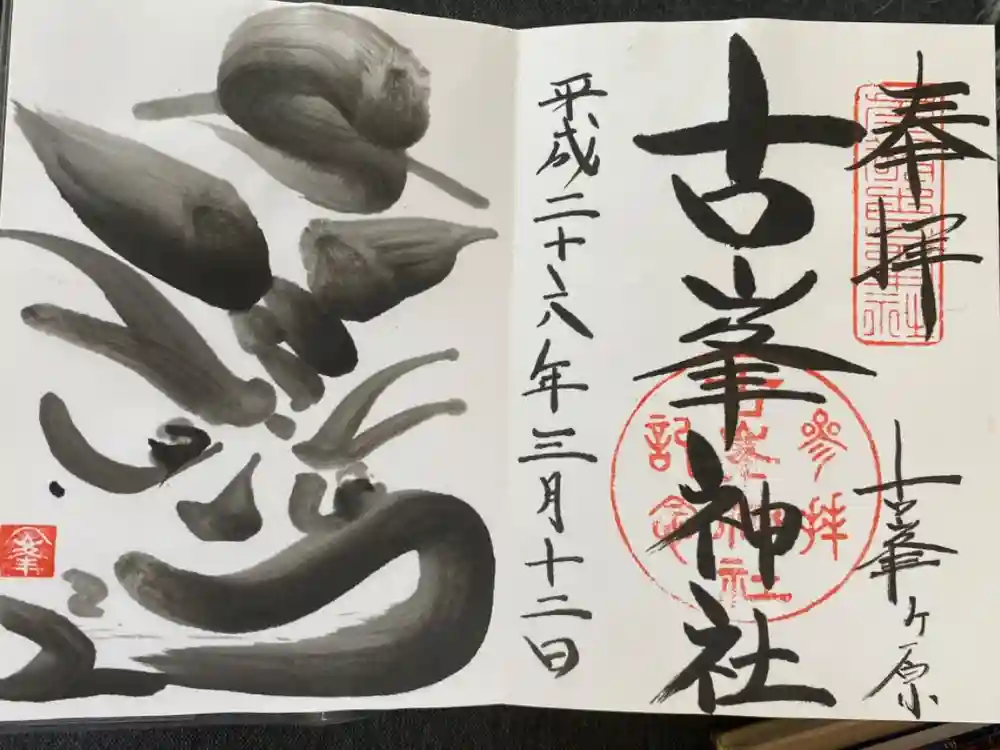 奉拝
古峯ヶ原
古峯神社
参拝記念
古峯神社
平成二十八年三月十二日
峯